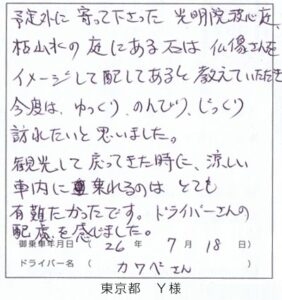 予定外に寄って下さった 光明院 波心庭、
枯山水の庭にある石は 仏像さんを
イメージして配してあると 教えていただき
今度は、ゆっくり、のんびり、じっくり
訪れたいと思いました。
観光して戻ってきた時に、涼しい
車内に乗れるのは とても
有難たかったです。ドライバーさんの
配慮を感じました。
御乗車年月日 ( 26 年 7 月 18 日 )
ドライバー名 ( カワベさん
東京都 Y様